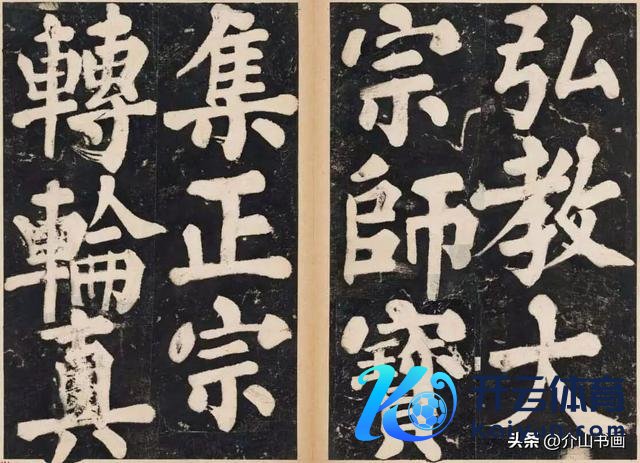 弘教大
宗師寶
集正宗
轉輪真
开云体育
头条 @介山书画